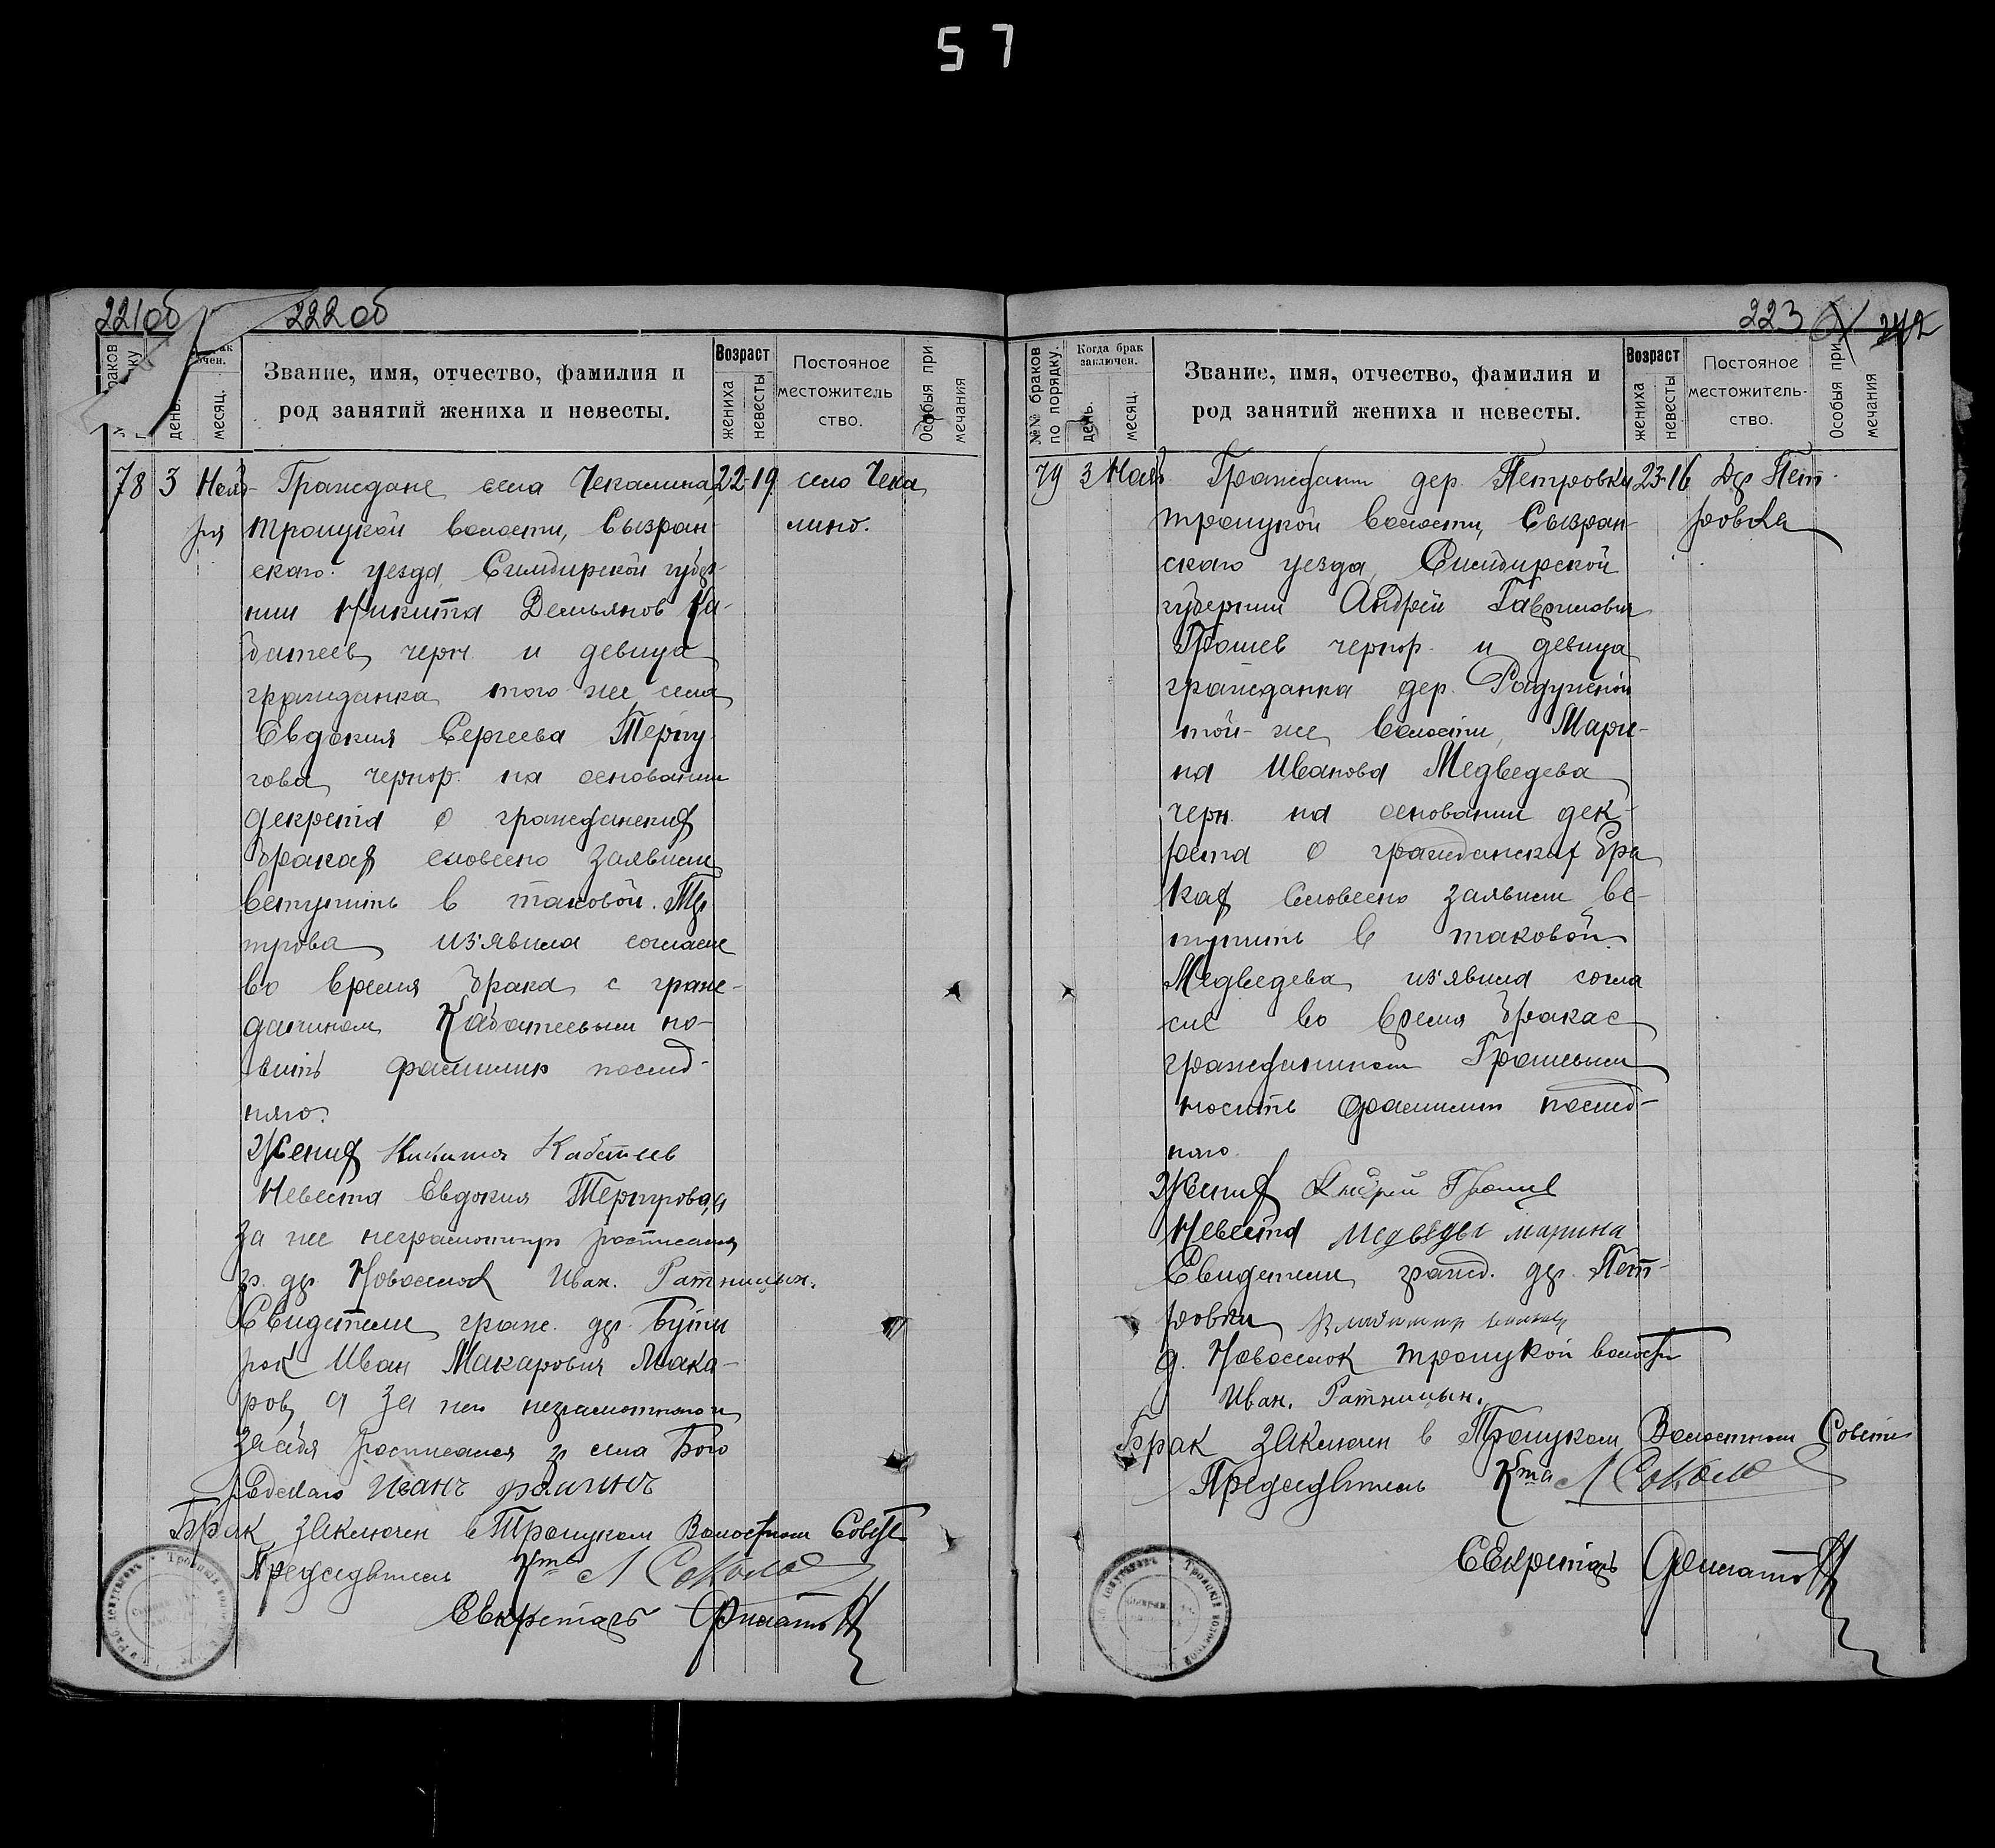 57
221об 222об
Возраст
Звание, имя, отчество, фамилия и
род занятий жениха и невесты.
Постояное
местожитель
ство.
день.
месяц.
жениха
невесты
Особыя при
мечания
78 3 Нояб- Граждане села Чекалина 22-19 село Чека
ря Троицкой волости, Сызран- лино.
скаго уезда Симбирской губер-
нии Никита Демьянов Ка-
батеев черн. и девица
гражданка того-же села
Евдокия Сергеева
чернор. на основании
декрета о гражданских
браках словесно заявили
вступить в таковой.
из'явила согласие
во время брака с граж-
данином Кабатеевым но-
сить фамилию послед-
няго.
Жених Никита Кабатеев
Невеста Евдокия
за нее неграмотную росписался
гр. дер. Новоселок Иван. Ратницын.
Свидетели граж. дер. Буты
рок Иван Макарович Мака-
ров, а за него неграмотнаго и
за себя росписался гр. села Бого
родскаго Иванъ
Брак заключен в Троицком Волостном Совете
Председатель
Секретарь Филатов
223 242
№№ браков
по порядку.
Когда брак
заключен.
день.
месяц.
Звание, имя, отчество, фамилия и
род занятий жениха и невесты.
Возраст
жениха
невесты
Постояное
местожитель-
ство.
Особыя при
мечания
79 3 Нояб Граждани дер. Петровки 23-16 Дер Пет-
Троицкой волости, Сызран- ровка
скаго уезда, Симбирской
губернии Андрей Гаврилович
Грошев чернор. и девица
гражданка дер. Радужной
той-же волости, Мари-
на Иванова Медведева
черн. на основании дек-
рета о гражданских бра
ках словесно заявили вс-
тупить в таковой.
Медведева из'явила согла
сие во время брака с
гражданином Грошевым
носить фамилию послед-
няго.
Жених Андрей Грошев
Невеста Медведева марина
Свидетели гражд. дер. Пет-
ровки
д. Новоселок Троицкой волости
Иван. Ратницын.
Брак заключен в Троицком Волостном Совете
Председатель
Секретарь Филатов